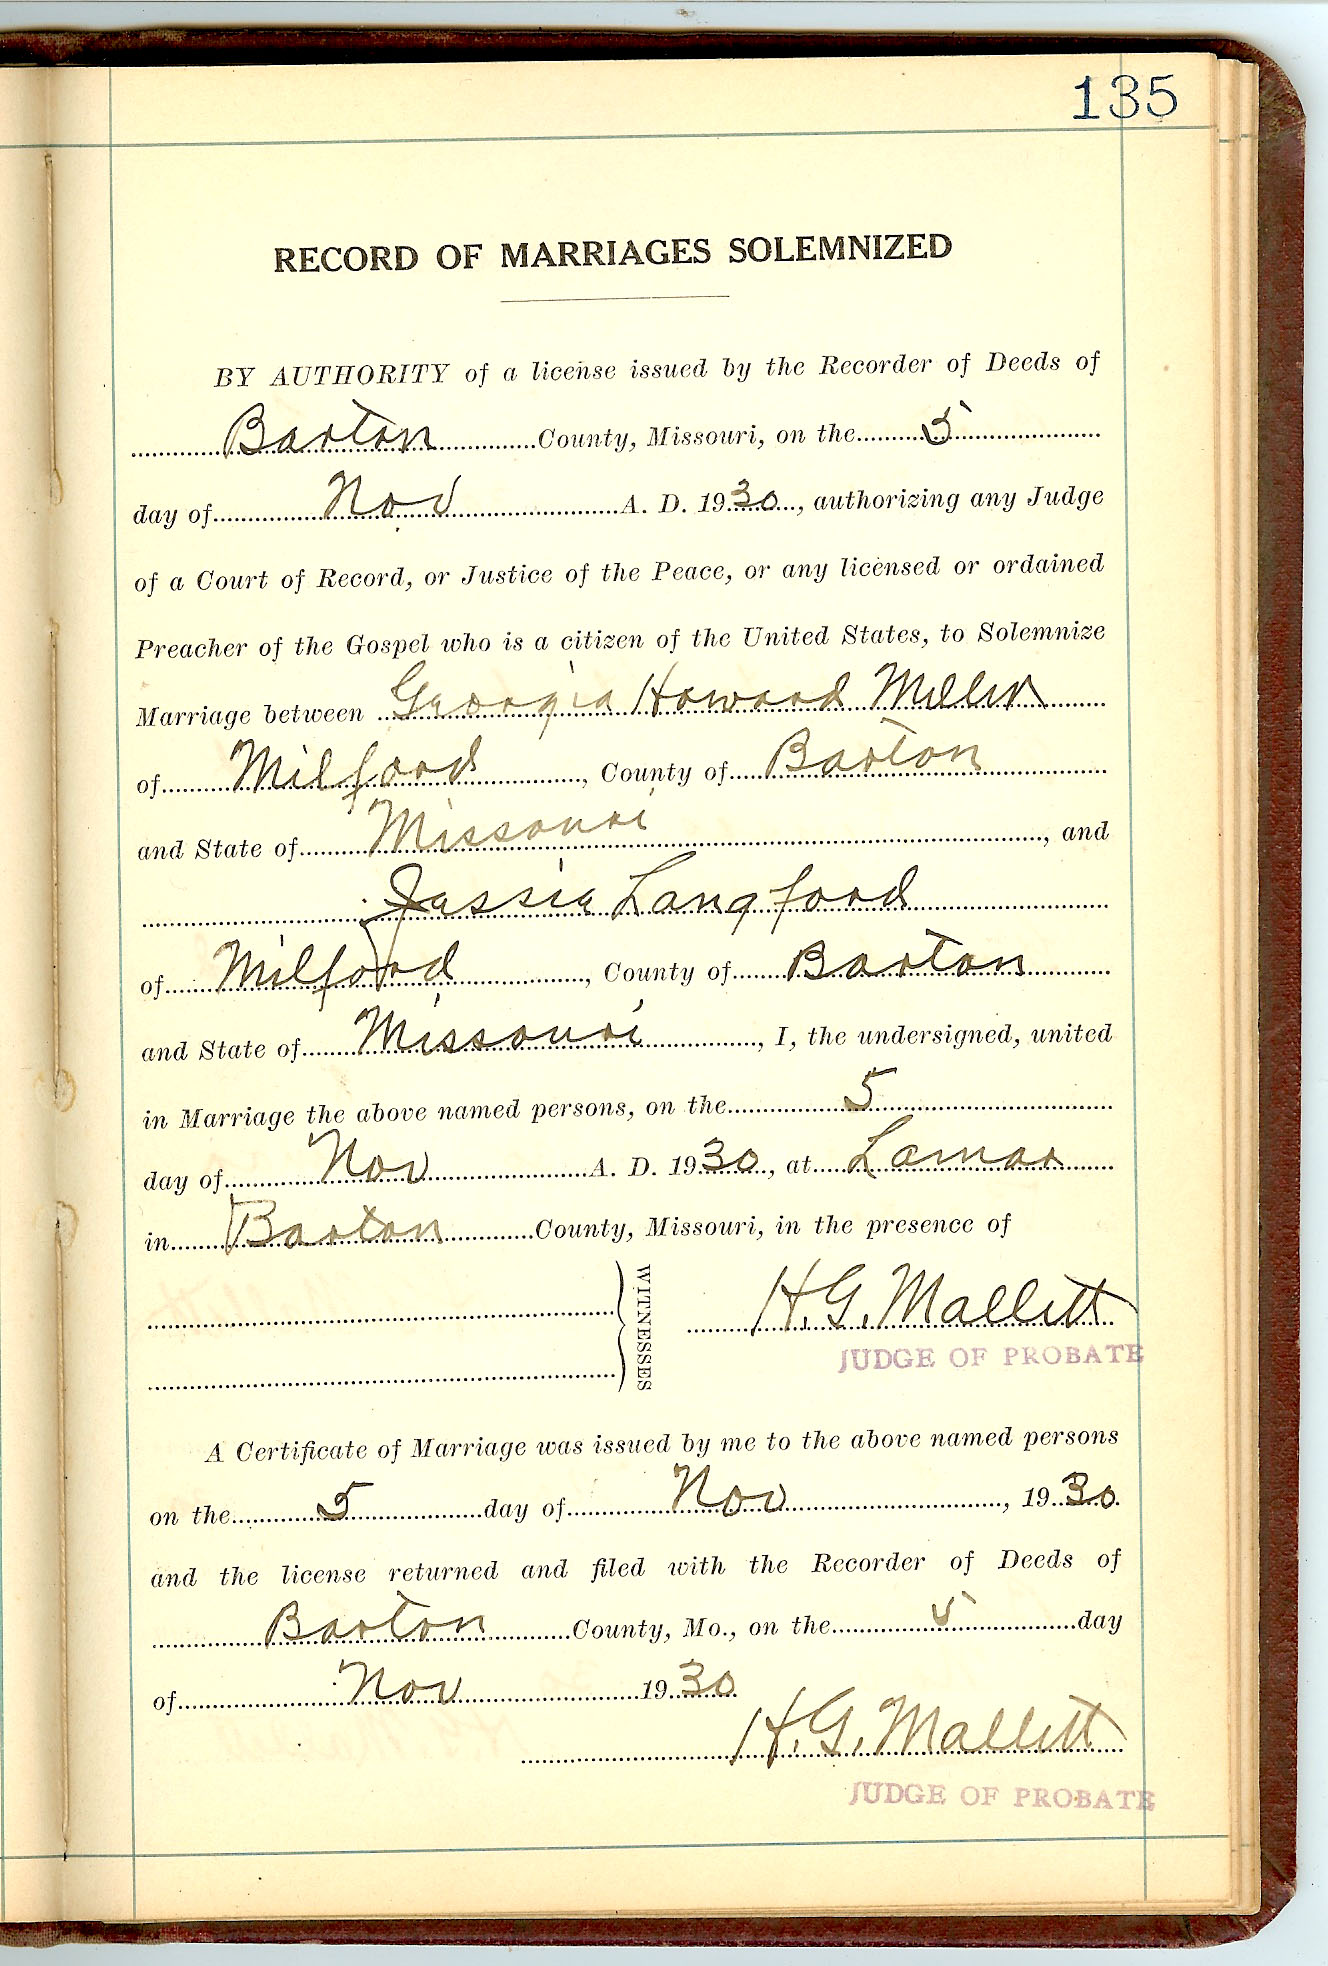 135
RECORD OF MARRIAGES SOLEMNIZED
BY AUTHORITY of a license issued by the Recorder of Deeds of
Barton County, Missouri, on the 5
day of Nov A. D. 1930, authorizing any Judge
of a Court of Record, or Justice of the Peace, or any licensed or ordained
Preacher of the Gospel who is a citizen of the United States, to Solemnize
Marriage between Georgia Howard Miller
of Milford, County of Barton
and State of Missouri, and
Jessie Langford
of Milford, County of Barton
and State of Missouri, I, the undersigned, united
in Marriage the above named persons, on the 5
day of Nov A. D. 1930, at Lamar
in Barton County, Missouri, in the presence of
WITNESSES
H. G. Mallett
JUDGE OF PROBATE
A Certificate of Marriage was issued by me to the above named persons
on the 5 day of Nov, 1930
and the license returned and filed with the Recorder of Deeds of
Barton County, Mo., on the 5 day
of Nov 1930
H. G. Mallett
JUDGE OF PROBATE